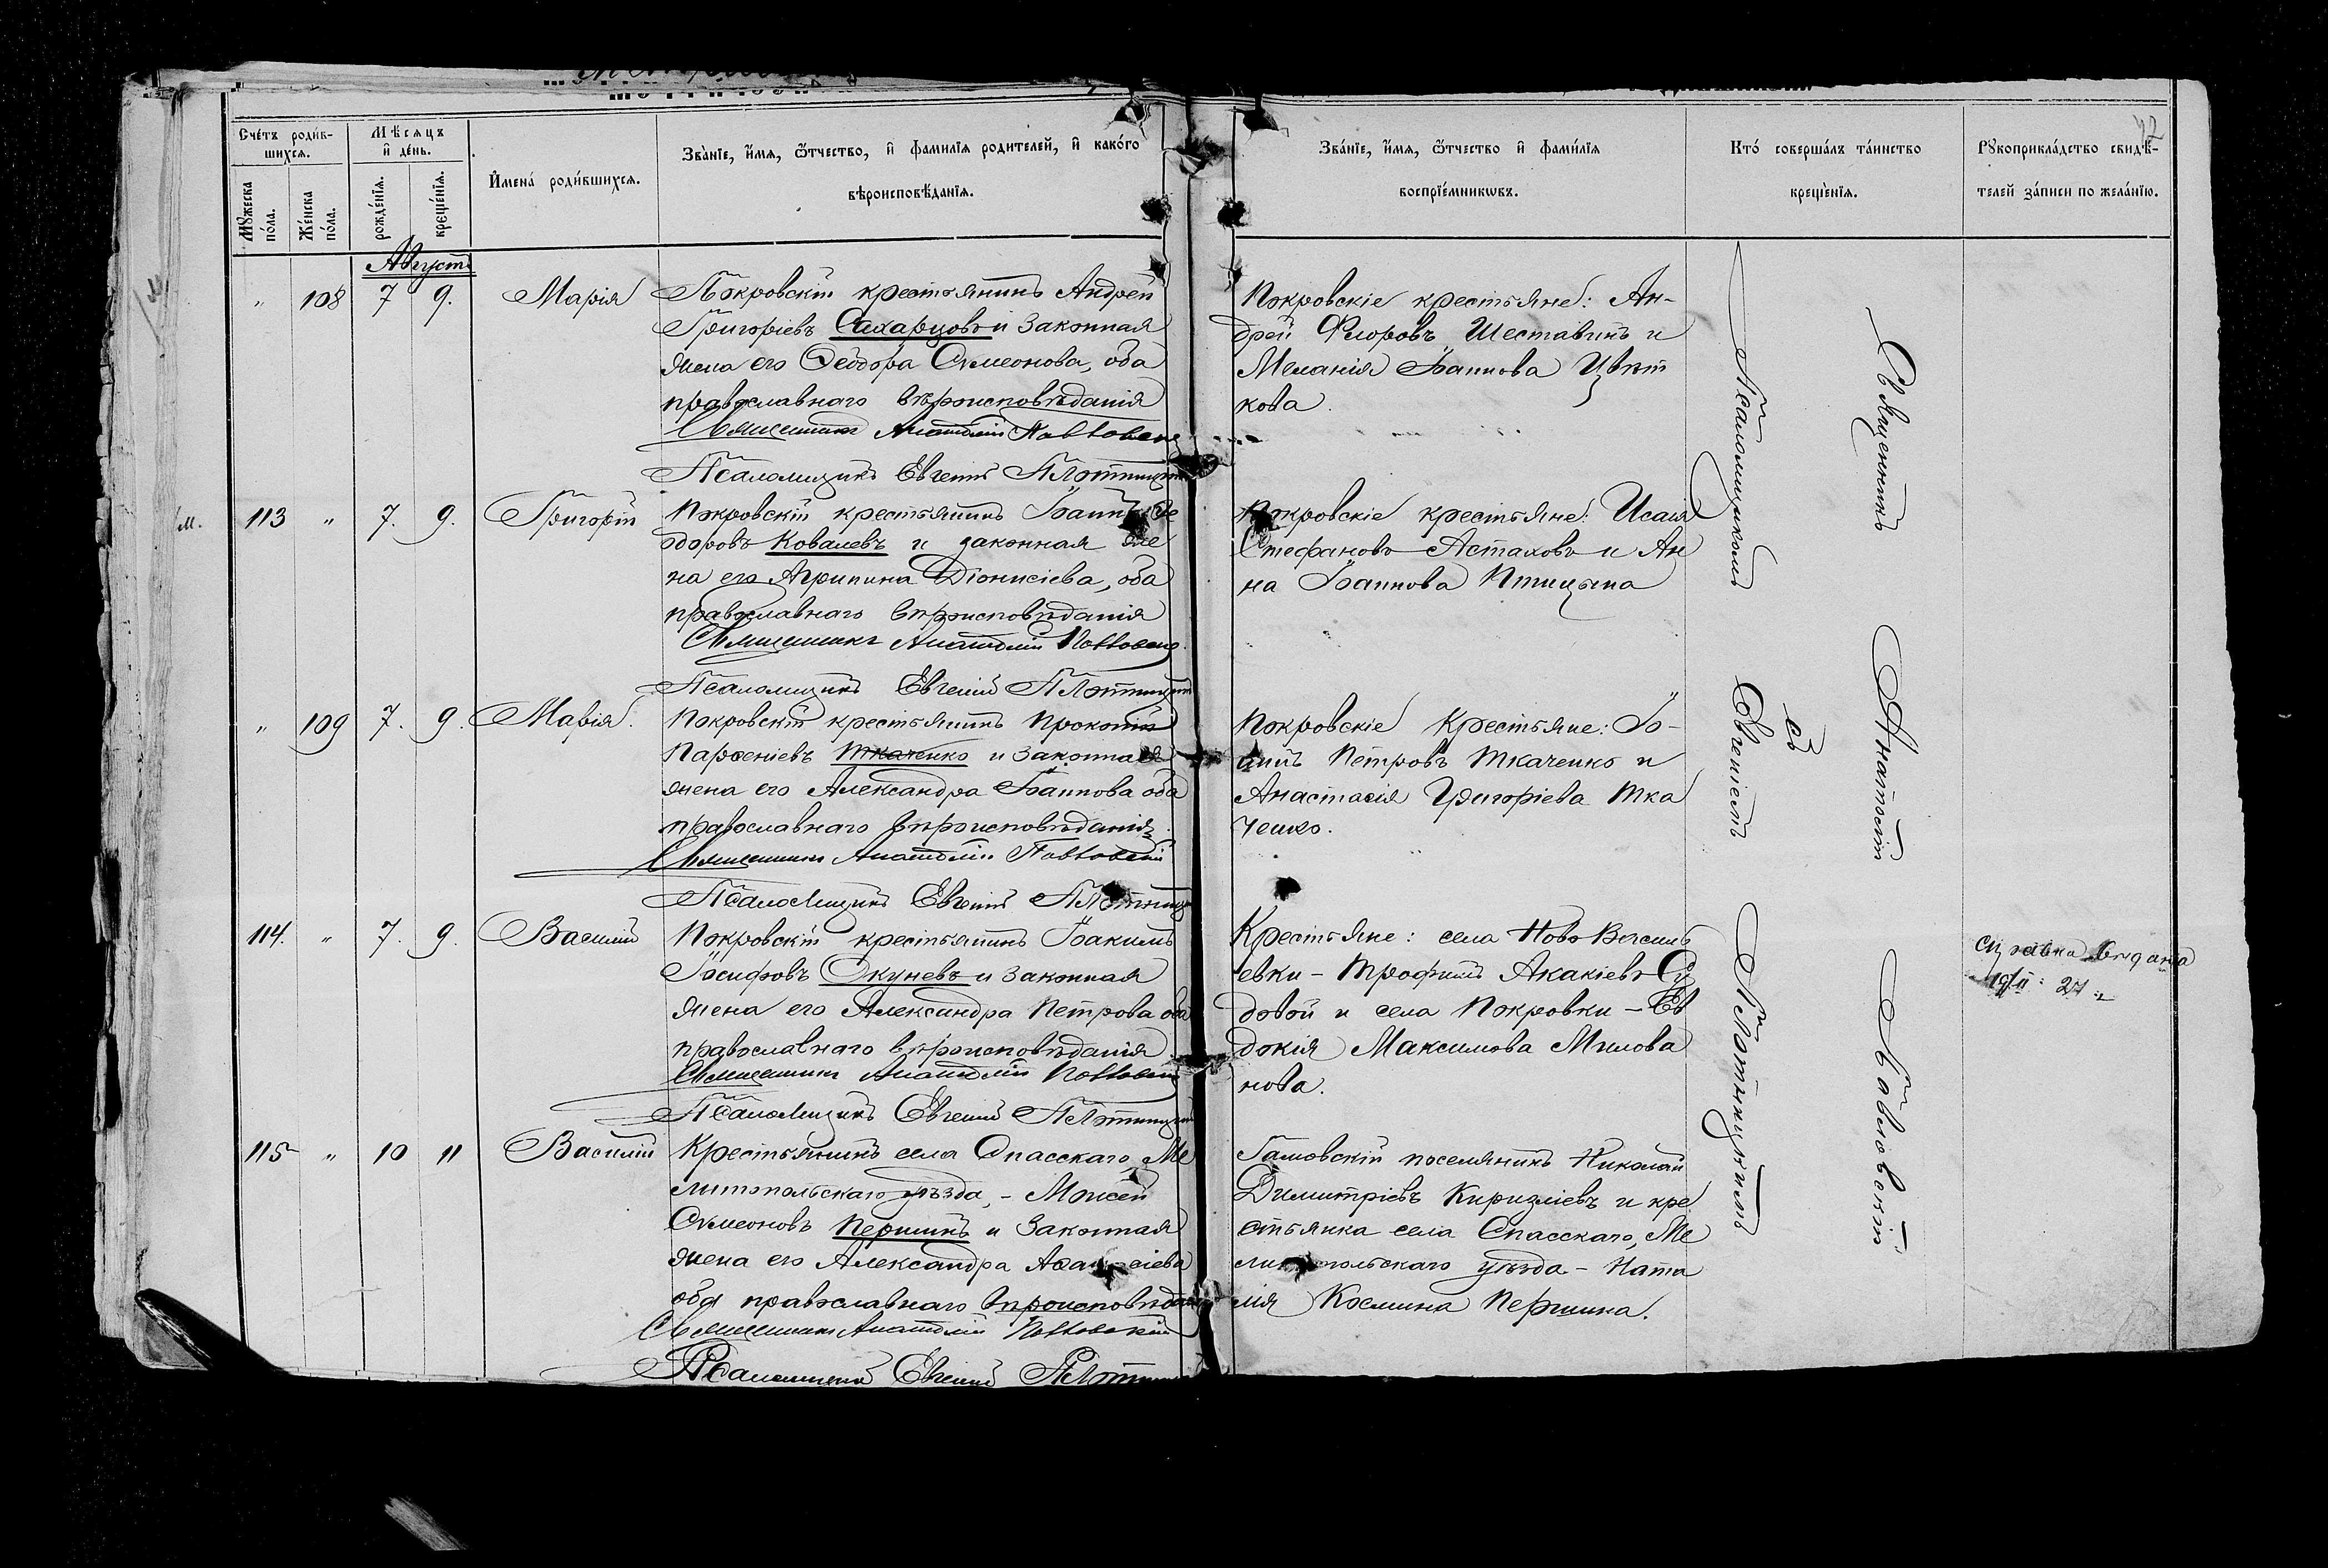 47
Счетъ родив-
шихся.
Мѣсяцъ
и день.
Имена родившихся.
Званіе, имя, отчество, и фамилія родителей, и какого
вѣроисповѣданія.
Званіе, имя, отчество и фамилія
воспріемниковъ.
Кто совершалъ таинство
крещенія.
Рукоприкладство свидѣ-
телей записи по желанію.
Мужеска
пола.
Женска
пола.
рожденія.
крещенія.
Августъ
" 108 7 9. Марія
Покровскій крестьянинъ Андрей
Григоріевъ Сахарцовъ и законная
жена его Ѳеодора Симеонова, оба
православнаго вѣроисповѣданія
Священникъ Анатолій Павловскій
Псаломщикъ Евгеній Плотницкій
Покровскіе крестьяне: Ан-
дрей Флоровъ Шеставинъ и
Меланія Іоаннова Цвѣт
кова.
м. 113 " 7. 9. Григорій
Покровскій крестьянинъ Іоаннъ Ѳе
одоровъ Ковалевъ и законная же
на его Агрипина Діонисіева, оба
православнаго вѣроисповѣданія
Священникъ Анатолій Павловскій
Псаломщикъ Евгеній Плотницкій
Покровскіе крестьяне: Исаія
Стефановъ Астаховъ и Ан
на Іоаннова Птицына
" 109 7. 9. Марія.
Покровскій крестьянинъ Прокопій
Парѳеніевъ Ткаченко и законная
жена его Александра Іоаннова оба
православнаго вѣроисповѣданія.
Священникъ Анатолій Павловскій
Псаломщикъ Евгеній Плотницкій
Покровскіе крестьяне: Іо-
аннъ Петровъ Ткаченко и
Анастасія Григоріева Тка
ченко.
114. " 7. 9. Василій
Покровскій крестьянинъ Іоакимъ
Іосифовъ Окуневъ и законная
жена его Александра Петрова оба
православнаго вѣроисповѣданія
Священникъ Анатолій Павловскій
Псаломщикъ Евгеній Плотницкій
Крестьяне: села Ново Василь
евки - Трофимъ Акакіевъ Су
довой и села Покровки - Ев
докія Максимова Милова
нова.
справка выдана
19/II 27
115 " 10 11 Василій
Крестьянинъ села Спасскаго, Ме
литопольскаго уѣзда, - Моисей
Симеоновъ Першинъ и законная
жена его Александра
оба православнаго вѣроисповѣданія
Священникъ Анатолій Павловскій
Псаломщикъ Евгеній Плотницкій
поселянинъ Николай
Димитріевъ и кре
стьянка села Спасскаго, Ме
литопольскаго уѣзда - Ната
лія Космина Першина.
Священникъ Анатолій Павловскій
съ
Псаломщикомъ Евгеніемъ Плотницкимъ